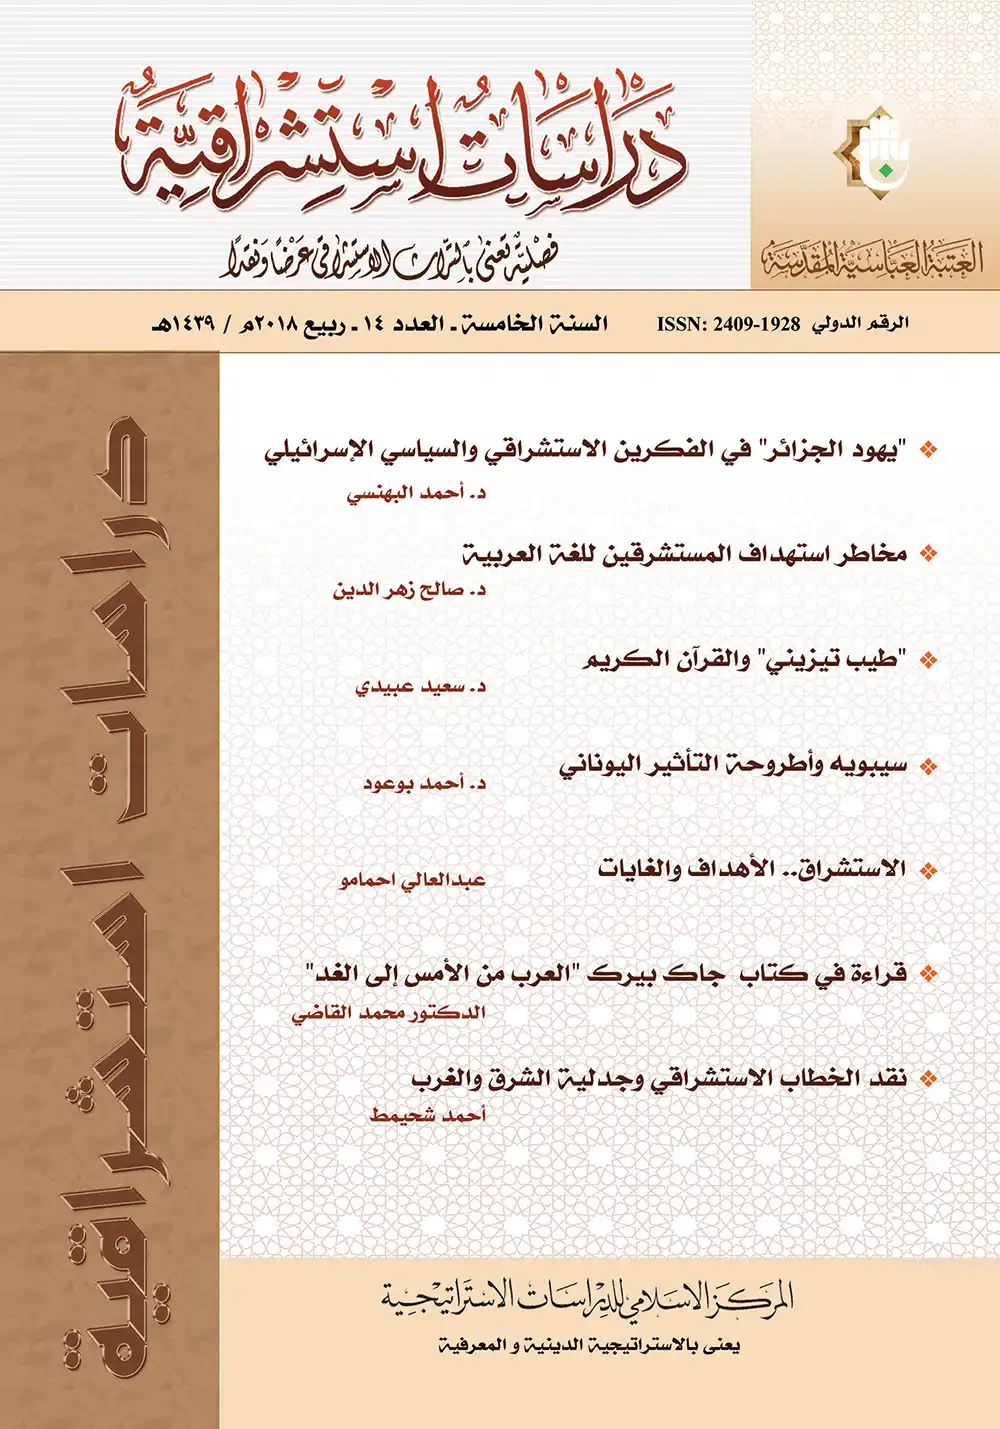 دراسات استشراقية
فصلية تعنى بالتراث الاستشراقي عرضاً ونقداً
العتبة العباسية المقدسة
الرقم الدولي ISSN: 2409-1928
السنة الخامسة ـ العدد ١٤ ـ ربيع ٢٠١٨م / ١٤٣٩هـ
"يهود الجزائر" في الفكرين الاستشراقي والسياسي الإسرائيلي
د. أحمد البهنسي
مخاطر استهداف المستشرقين للغة العربية
د. صالح زهر الدين
"طيب تيزيني" والقرآن الكريم
د. سعيد عبيدي
سيبويه وأطروحة التأثير اليوناني
د. أحمد بوعود
الاستشراق.. الأهداف والغايات
عبدالعالي احمامو
قراءة في كتاب جاك بيرك "العرب من الأمس إلى الغد"
الدكتور محمد القاضي
نقد الخطاب الاستشراقي وجدلية الشرق والغرب
أحمد شحيمط
المركز الاسلامي للدراسات الاستراتيجية
يعنى بالاستراتيجية الدينية و المعرفية
دراسات استشراقية